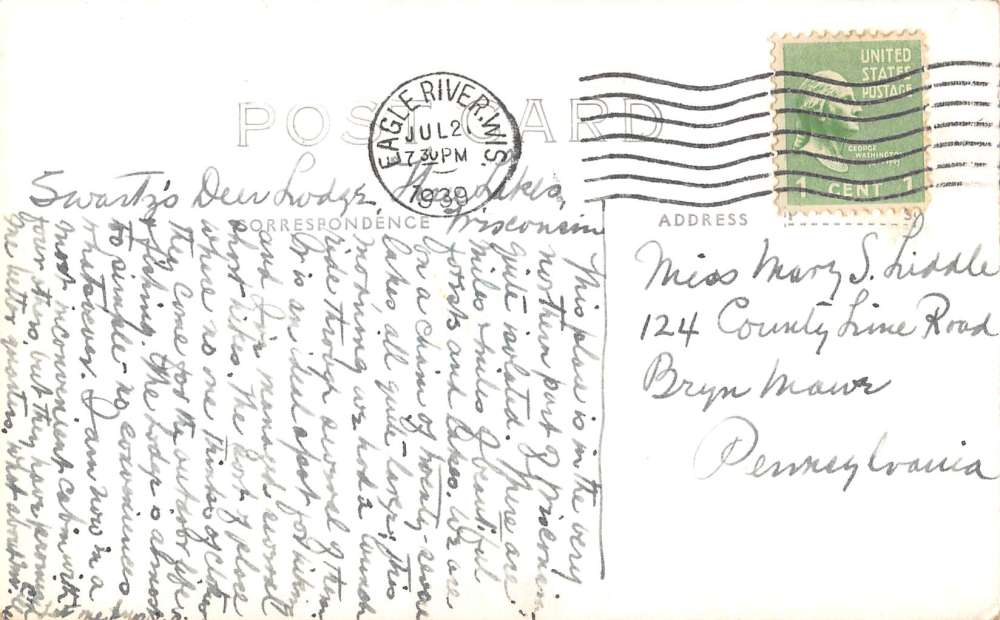 POST CARD
EAGLE RIVER, WIS
JUL 2
7 30 PM
1939
UNITED
STATES
POSTAGE
GEORGE
WASHINGTON
1 CENT 1
Swartz's Deer Lodge, Lakes,
Wisconsin
CORRESPONDENCE
ADDRESS
This place is in the very
northern part of Wisconsin
quite isolated. There are
miles & miles of beautiful
forests and lakes. We are
on a chain of twenty-seven
lakes all quite large; this
morning we had a launch
ride through several of them.
It is an ideal spot for hiking
and I've managed several
short hikes. The sort of place
where no one thinks of clothes
they come for the outdoor life &
fishing. The Lodge is almost
to simple - no conveniences
whatsoever. I am now in a
most inconvenient cabin with
four others, but they have promised
me better quarters. What about
Let me
Miss Mary S. Liddle
124 County Line Road
Bryn Mawr
Pennsylvania